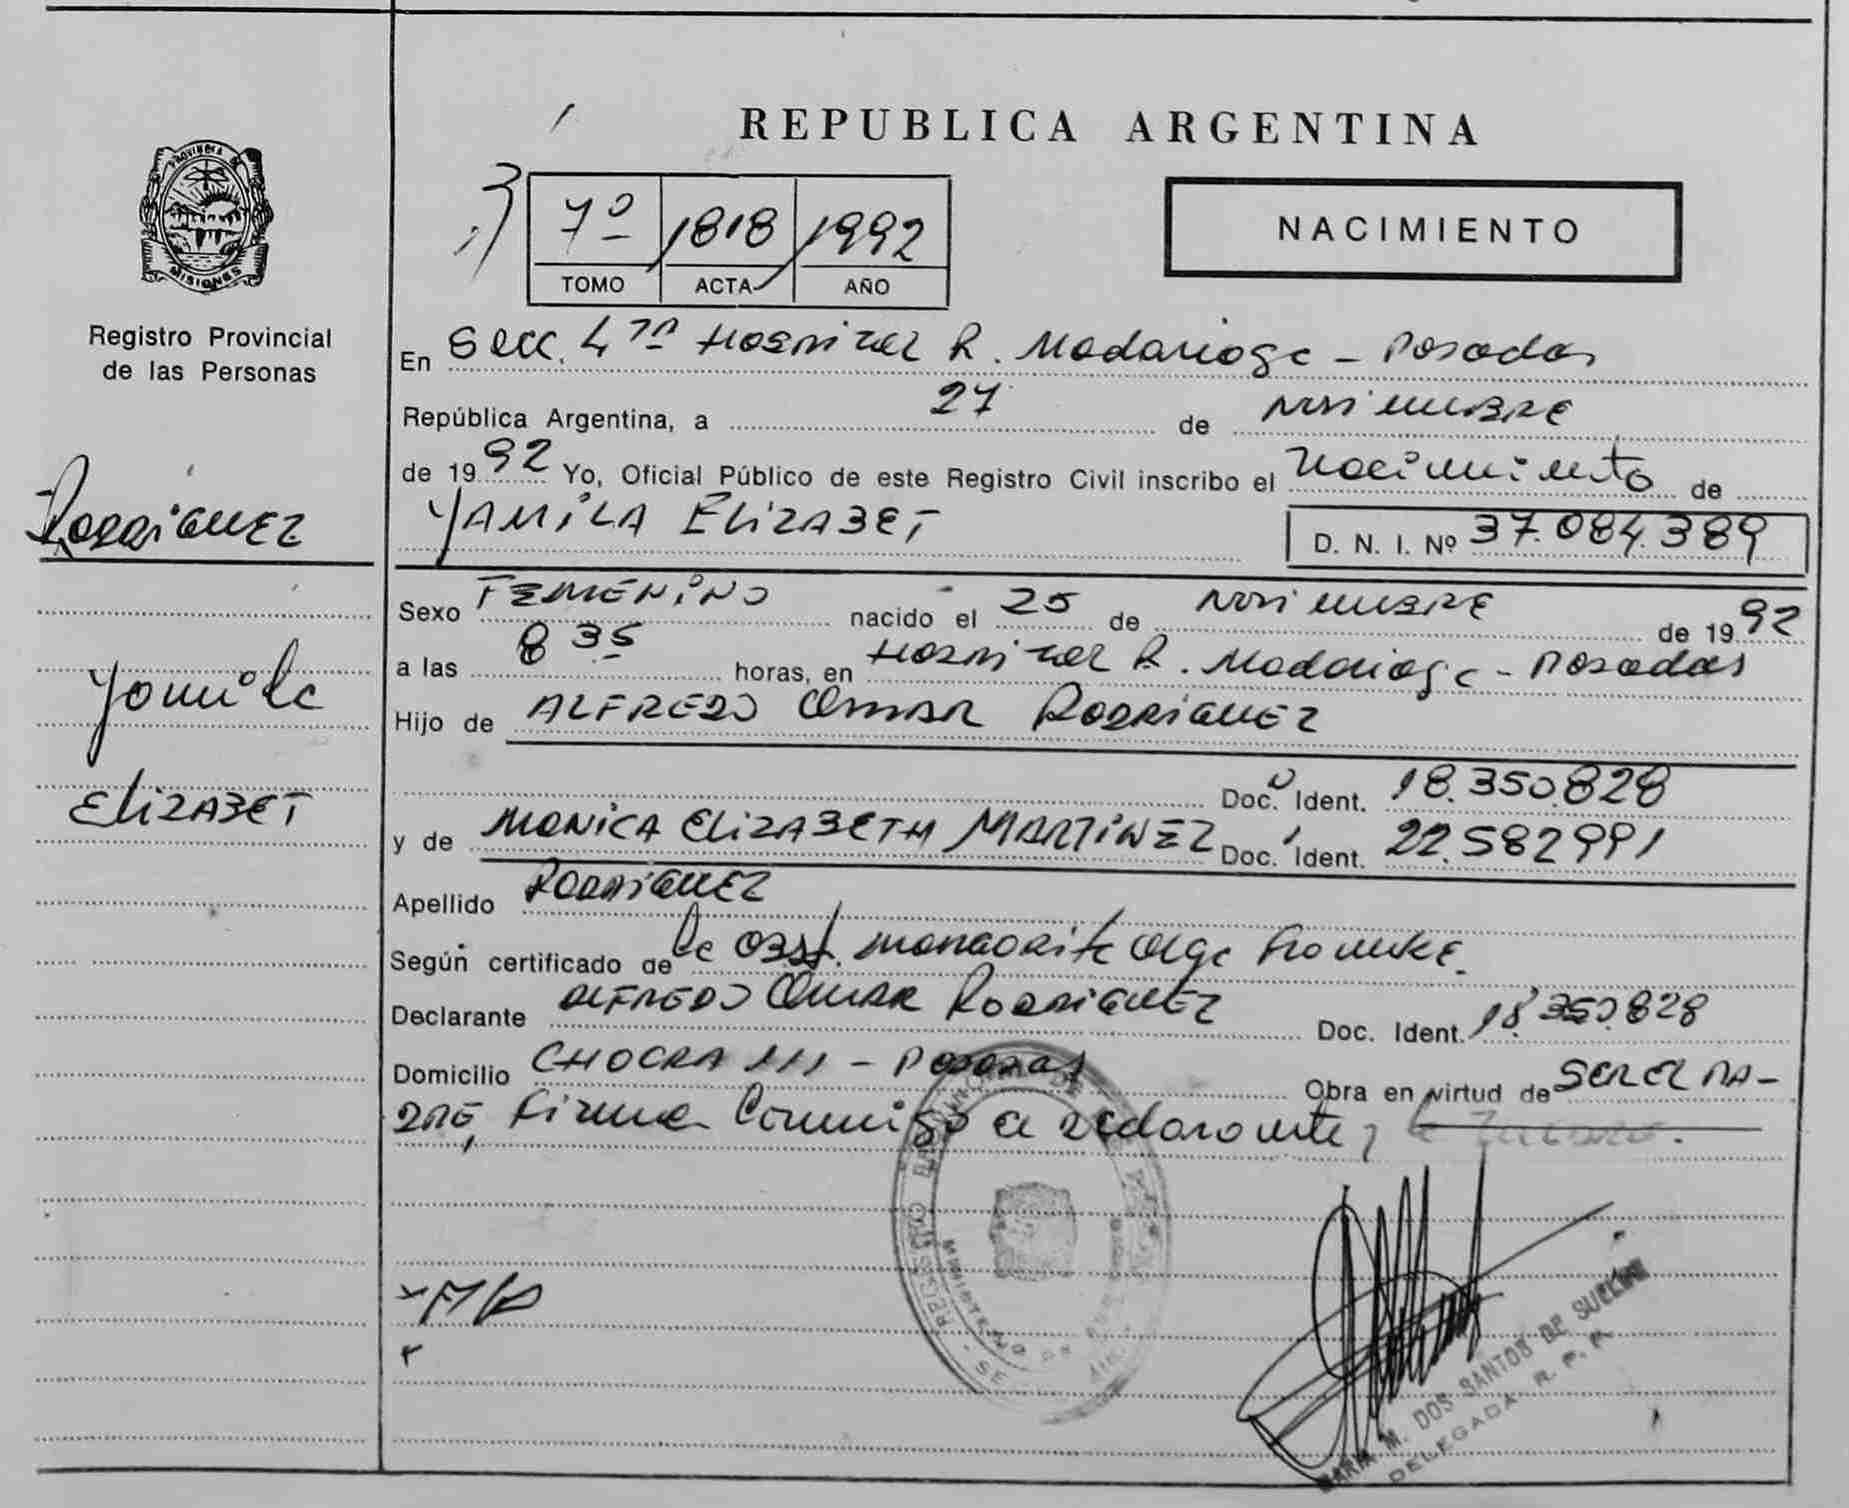 REPUBLICA ARGENTINA
PROVINCIA DE
MISIONES
Registro Provincial
de las Personas
7º 1818 1992
TOMO ACTA AÑO
NACIMIENTO
En Secc. 4ta Hospital R. Madariaga - Posadas
República Argentina, a 27 de Noviembre
de 1992 Yo, Oficial Público de este Registro Civil inscribo el Nacimiento de
YAMILA ELIZABET D. N. I. Nº 37.084.389
Rodriguez
Yamila
ELIZABET
Sexo FEMENINO nacido el 25 de Noviembre de 1992
a las 8 35 horas, en Hospital R. Madariaga - Posadas
Hijo de ALFREDO OMAR RODRIGUEZ
Doc. Ident. 18.350.828
y de MONICA ELIZABETH MARTINEZ Doc. Ident. 22.582991
Apellido RODRIGUEZ
Según certificado de la Obst. Olga
Declarante ALFREDO OMAR RODRIGUEZ Doc. Ident. 18.350.828
Domicilio CHACRA 111 - Posadas Obra en virtud de SER EL PA-
DRE, Firma Conmigo el declarante,
REGISTRO
MINISTERIO DE
M. DOS SANTOS DE
DELEGADA R. P. P.